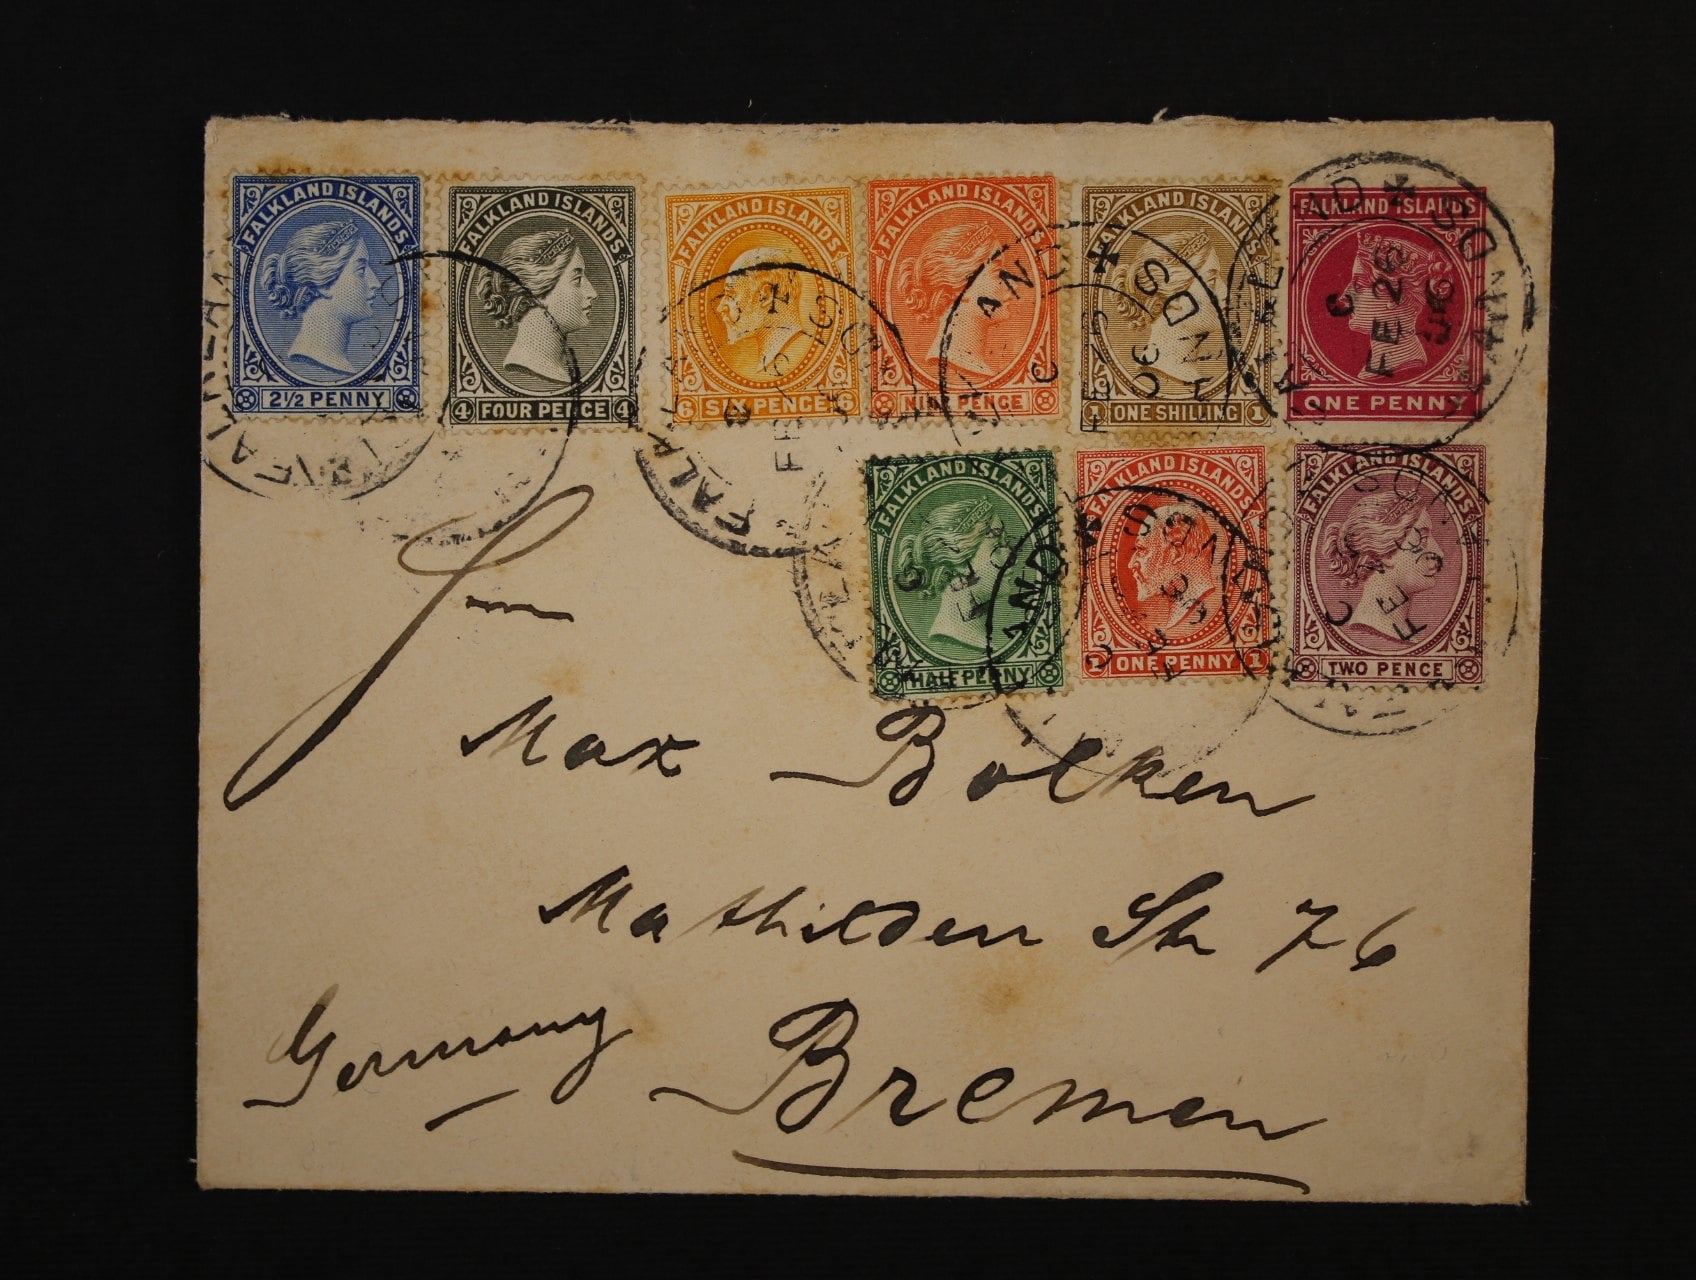 FALKLAND ISLANDS
2½ PENNY
FALKLAND ISLANDS
4 FOUR PENCE 4
FALKLAND ISLANDS
6 SIX PENCE 6
FALKLAND ISLANDS
NINE PENCE
FALKLAND ISLANDS
1 ONE SHILLING 1
FALKLAND ISLANDS
ONE PENNY
FALKLAND ISLANDS
HALF PENNY
FALKLAND ISLANDS
1 ONE PENNY 1
FALKLAND ISLANDS
TWO PENCE
FALKLAND ISLANDS
C
FE 26
06
Max Bolken
Mathilden Str 76
Germany Bremen